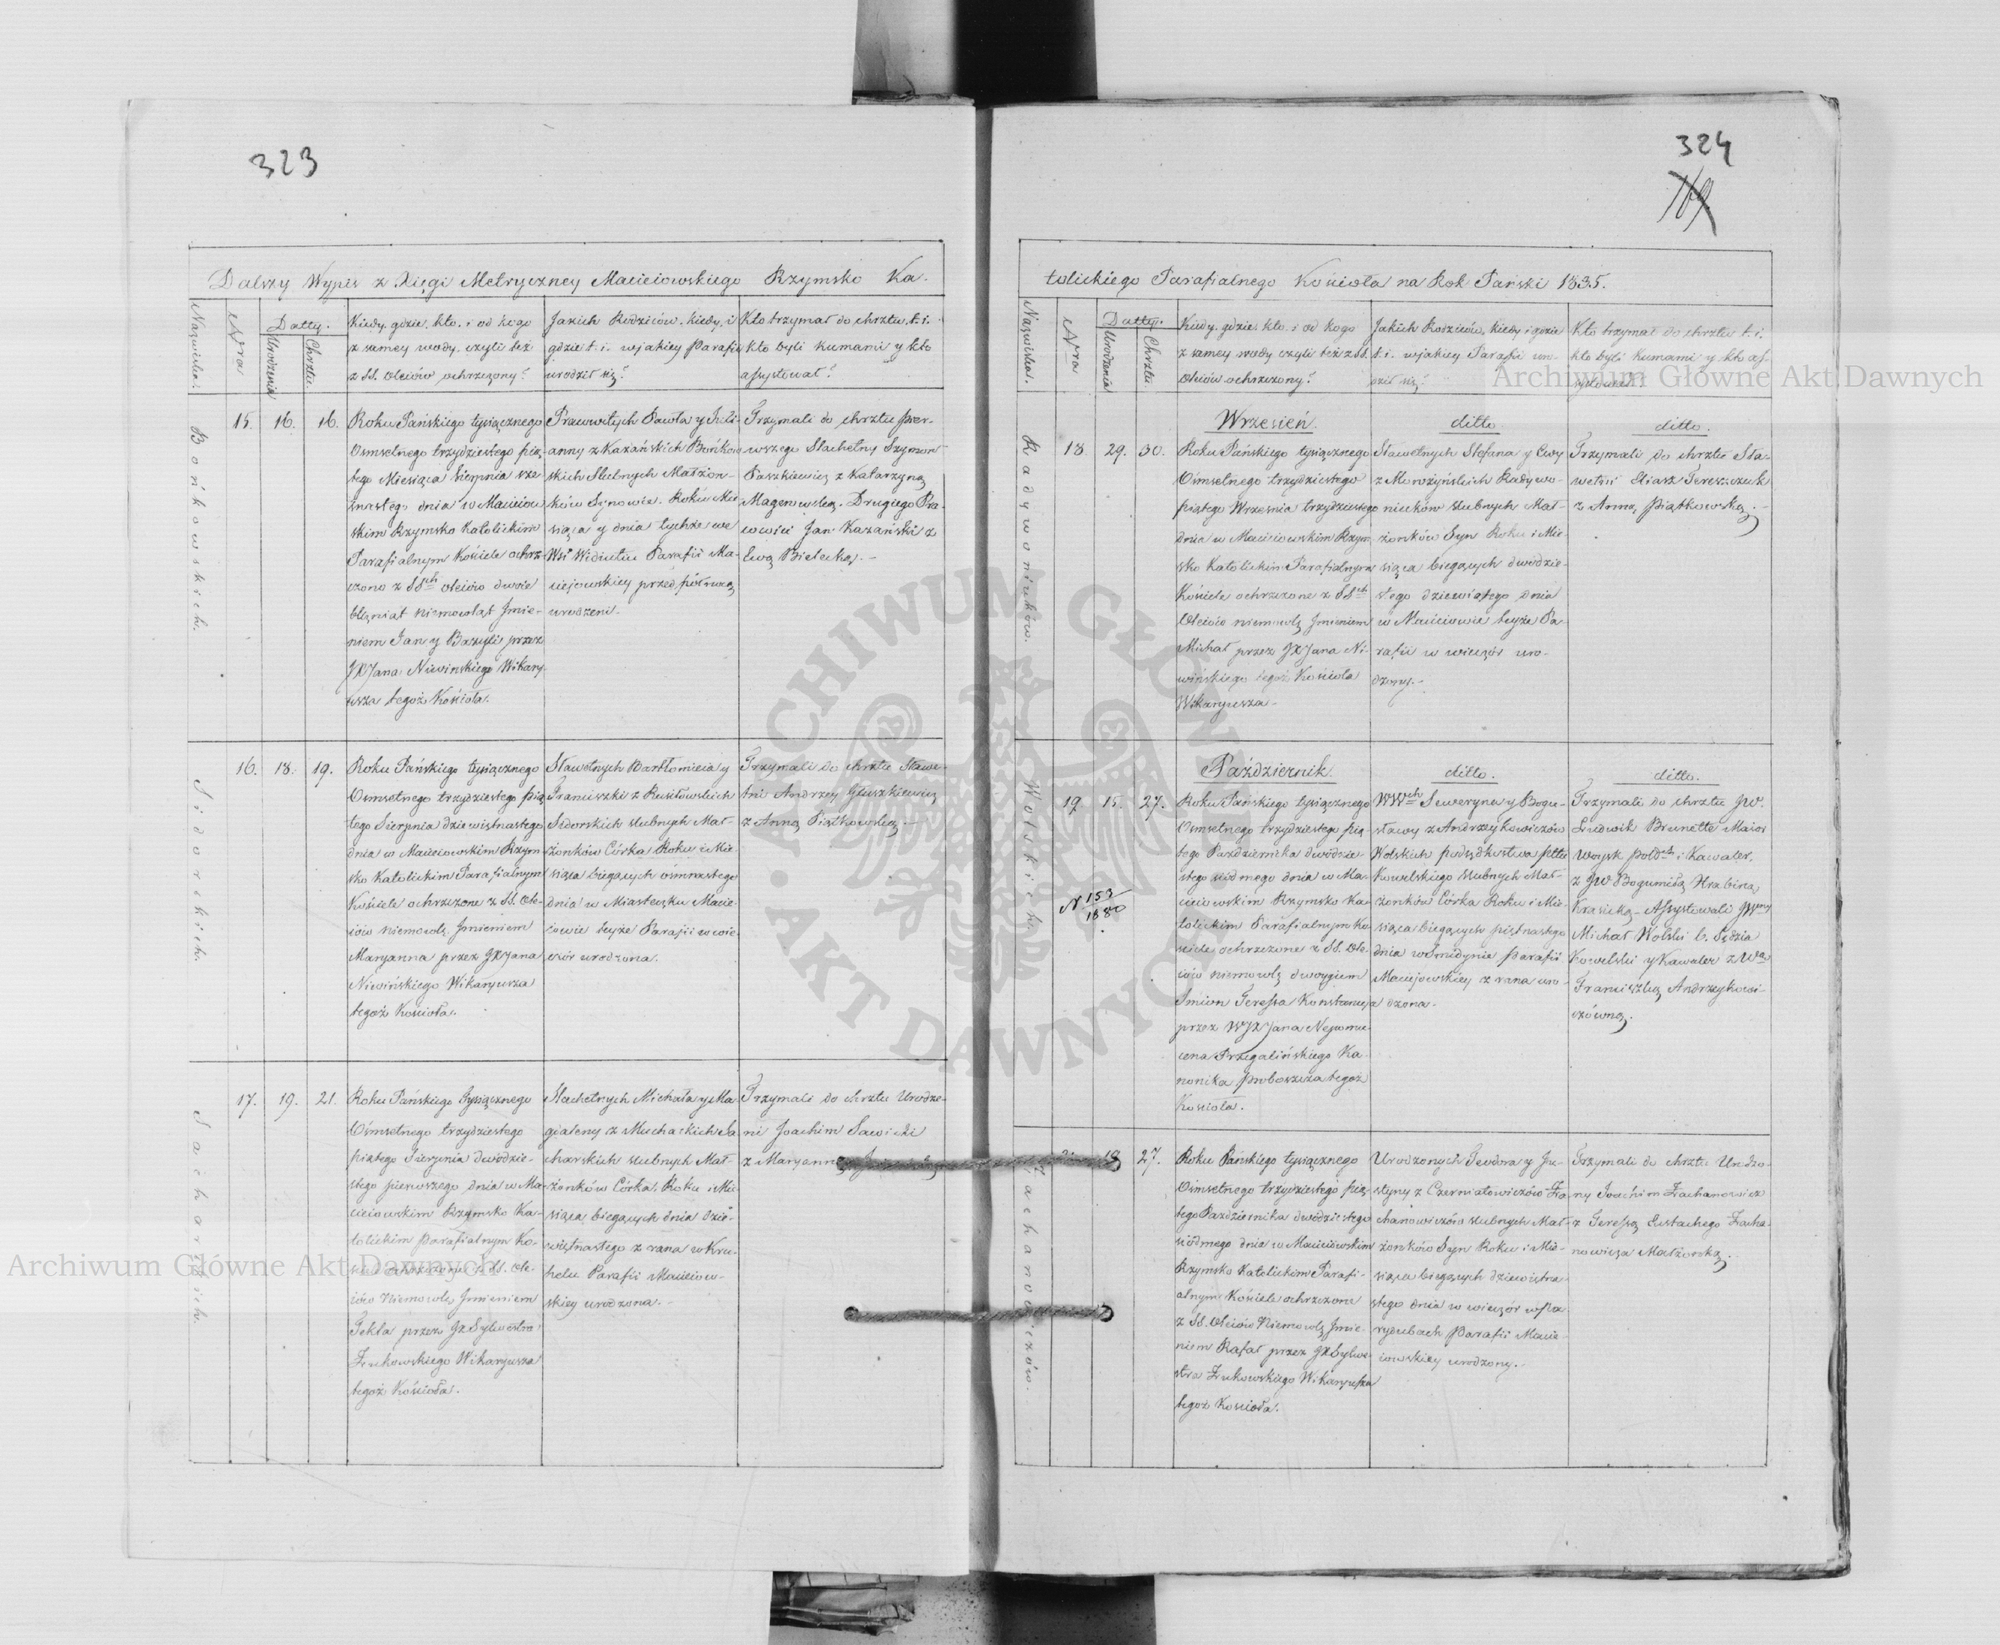 323
Dalszy Wypis z Xięgi Metryczney Macieiowskiego Rzymsko Ka-
Nazwiska.
Nra
Datty.
Urodzenia
Chrztu
Kiedy, gdzie, kto, i od kogo
z samey wody, czyli też
z SS. Oleiów ochrzczony?
Jakich Rodziców, kiedy, i
gdzie t. i. w jakiey Parafii
urodził się?
Kto trzymał do chrztu, t. i.
kto byli kumami y kto
assystował?
Bońkowskich.
15. 16. 16.
Roku Pańskiego tysiącznego
Osmsetnego trzydziestego pią-
tego Miesiąca Sierpnia sze-
snastego dnia w Macieiow-
skim Rzymsko Katolickim
Parafialnym Kościele ochrz-
czono z SSch Oleiów dwoie
bliźniąt niemowląt Jmie-
niem Jan y Bazyli przez
JX Jana Niwinskiego Wikary-
usza tegoż Kościoła.
Prawowitych Pawła y Juli-
anny z Kazańskich Bońkow-
skich slubnych Małżon-
ków Synowie, Roku Mie-
siąca y dnia tychże we
Wsi Widiutiu Parafii Ma-
ciejowskiey przed północą
urodzeni.
Trzymali do chrztu pier-
wszego Slachetny Szymon
Paszkiewicz z Katarzyną
Magenowską. Drugiego Pra-
cowici Jan Kazański z
Ewą Bielecką.
Sidorskich.
16. 18. 19.
Roku Pańskiego tysiącznego
Osmsetnego trzydziestego pią-
tego Sierpnia dziewiętnastego
dnia w Macieiowskim Rzym-
sko Katolickim Parafialnym
Kościele ochrzczono z SS. Ole-
iów niemowlę Jmieniem
Maryanna przez JX Jana
Niwińskiego Wikaryusza
tegoż Kościoła.
Sławetnych Bartłomieia y
Franciszki z Rusiłowskich
Sidorskich slubnych Mał-
żonków Córka Roku i Mie-
siąca bieżących osmnastego
dnia w Miasteczku Macie-
iowie teyże Parafii w wie-
czór urodzona.
Trzymali do chrztu Sławe-
tni Andrzey Głuszkiewicz
z Anną Piątkowską.
Sacharskich.
17. 19. 21.
Roku Pańskiego Tysiącznego
Osmsetnego trzydziestego
piątego Sierpnia dwódzie-
stego pierwszego dnia w Ma-
cieiowskim Rzymsko Ka-
tolickim Parafialnym Ko-
ściele ochrzczono z SS. Ole-
iów Niemowlę Jmieniem
Tekla przez JX Sylwestra
Żukowskiego Wikaryusza
tegoż Kościoła.
Slachetnych Michała y Ma-
gdaleny z Muchaskich Sa-
charskich slubnych Mał-
żonków Córka, Roku i Mie-
siąca bieżących dnia dzie-
więtnastego z rana w Kru-
helu Parafii Macieiow-
skiey urodzona.
Trzymali do chrztu Urodze-
ni Joachim Sawicki
z Maryanną
324
169.
tolickiego Parafialnego Kościoła na Rok Pański 1835.
Nazwiska.
Nra
Datty.
Urodzenia
Chrztu
Kiedy, gdzie, kto, i od kogo
z samey wody czyli też z SS.
Oleiów ochrzczony?
Jakich Rodziców, kiedy i gdzie
t. i. w jakiey Parafii uro-
dził się?
Kto trzymał do chrztu t. i.
kto byli kumami y kto as-
systował?
Radywoniuków.
Wrzesień. ditto. ditto.
18. 29. 30.
Roku Pańskiego tysiącznego
Osmsetnego trzydziestego
piątego Września trzydziestego
dnia w Macieiowskim Rzym-
sko Katolickim Parafialnym
Kościele ochrzczono z SSch
Oleiów niemowlę Jmieniem
Michał przez JX Jana Ni-
wińskiego tegoż Kościoła
Wikaryusza.
Sławetnych Stefana y Ewy
z Morożyńskich Radywo-
niuków slubnych Mał-
żonków Syn Roku i Mie-
siąca bieżących dwódzie-
stego dziewiątego dnia
w Macieiowie teyże Pa-
rafii w wieczór uro-
dzony.
Trzymali do chrztu Sła-
wetni Eliasz Tereszczuk
z Anną Piątkowską.
Wolskich.
Październik. ditto. ditto.
19 15. 27.
N 153/1880
Roku Pańskiego tysiącznego
Osmsetnego trzydziestego pią-
tego Października dwódzie-
stego siódmego dnia w Ma-
cieiowskim Rzymsko Ka-
tolickim Parafialnym Ko-
sciele ochrzczone z SS. Ole-
iów niemowlę dwoygiem
Imion Teressa Konstancya
przez WJX Jana Nepomu-
cena Przegalińskiego Ka-
nonika Proboszcza tegoż
Kościoła.
WWch Seweryna y Bogu-
sławy z Andrzeykowiczów
Wolskich podsędkostwa pttu
Kowelskiego slubnych Mał-
żonków Córka Roku i Mie-
siąca bieżących piętnastego
dnia w Smidynie Parafii
Maciejowskiey z rana uro-
dzona.
Trzymali do chrztu JW.
Ludwik Brunette Maior
Woysk Polsch i Kawaler,
z JW Bogumiłą Hrabiną
Krasicką. Assystowali JW
Michał Wolski b. Sędzia
Kowelski y Kawaler z Wą
Franciszką Andrzeykowi-
czówną.
Żachanowiczów.
27.
Roku Pańskiego tysiącznego
Osmsetnego trzydziestego pią-
tego Października dwódziestego
siódmego dnia w Macieiowskim
Rzymsko Katolickim Parafi-
alnym Kościele ochrzczone
z SS. Oleiów Niemowlę Jmie-
niem Rafał przez JX Sylwe-
stra Żukowskiego Wikaryusza
tegoż Kościoła.
Urodzonych Teodora y Ju-
styny z Czerniatowiczów Ża-
chanowiczów slubnych Mał-
żonków Syn Roku i Mie-
siąca bieżących dziewiętna-
stego dnia w wieczór w Pa-
rydubach Parafii Macie-
iowskiey urodzony.
Trzymali do chrztu Urodzo-
ny Joachim Żachanowicz
z Teressą Eustachego Żacha-
nowicza Małżonką.
Archiwum Główne Akt Dawnych
Archiwum Główne Akt Dawnych
ARCHIWUM GŁÓWNE AKT DAWNYCH